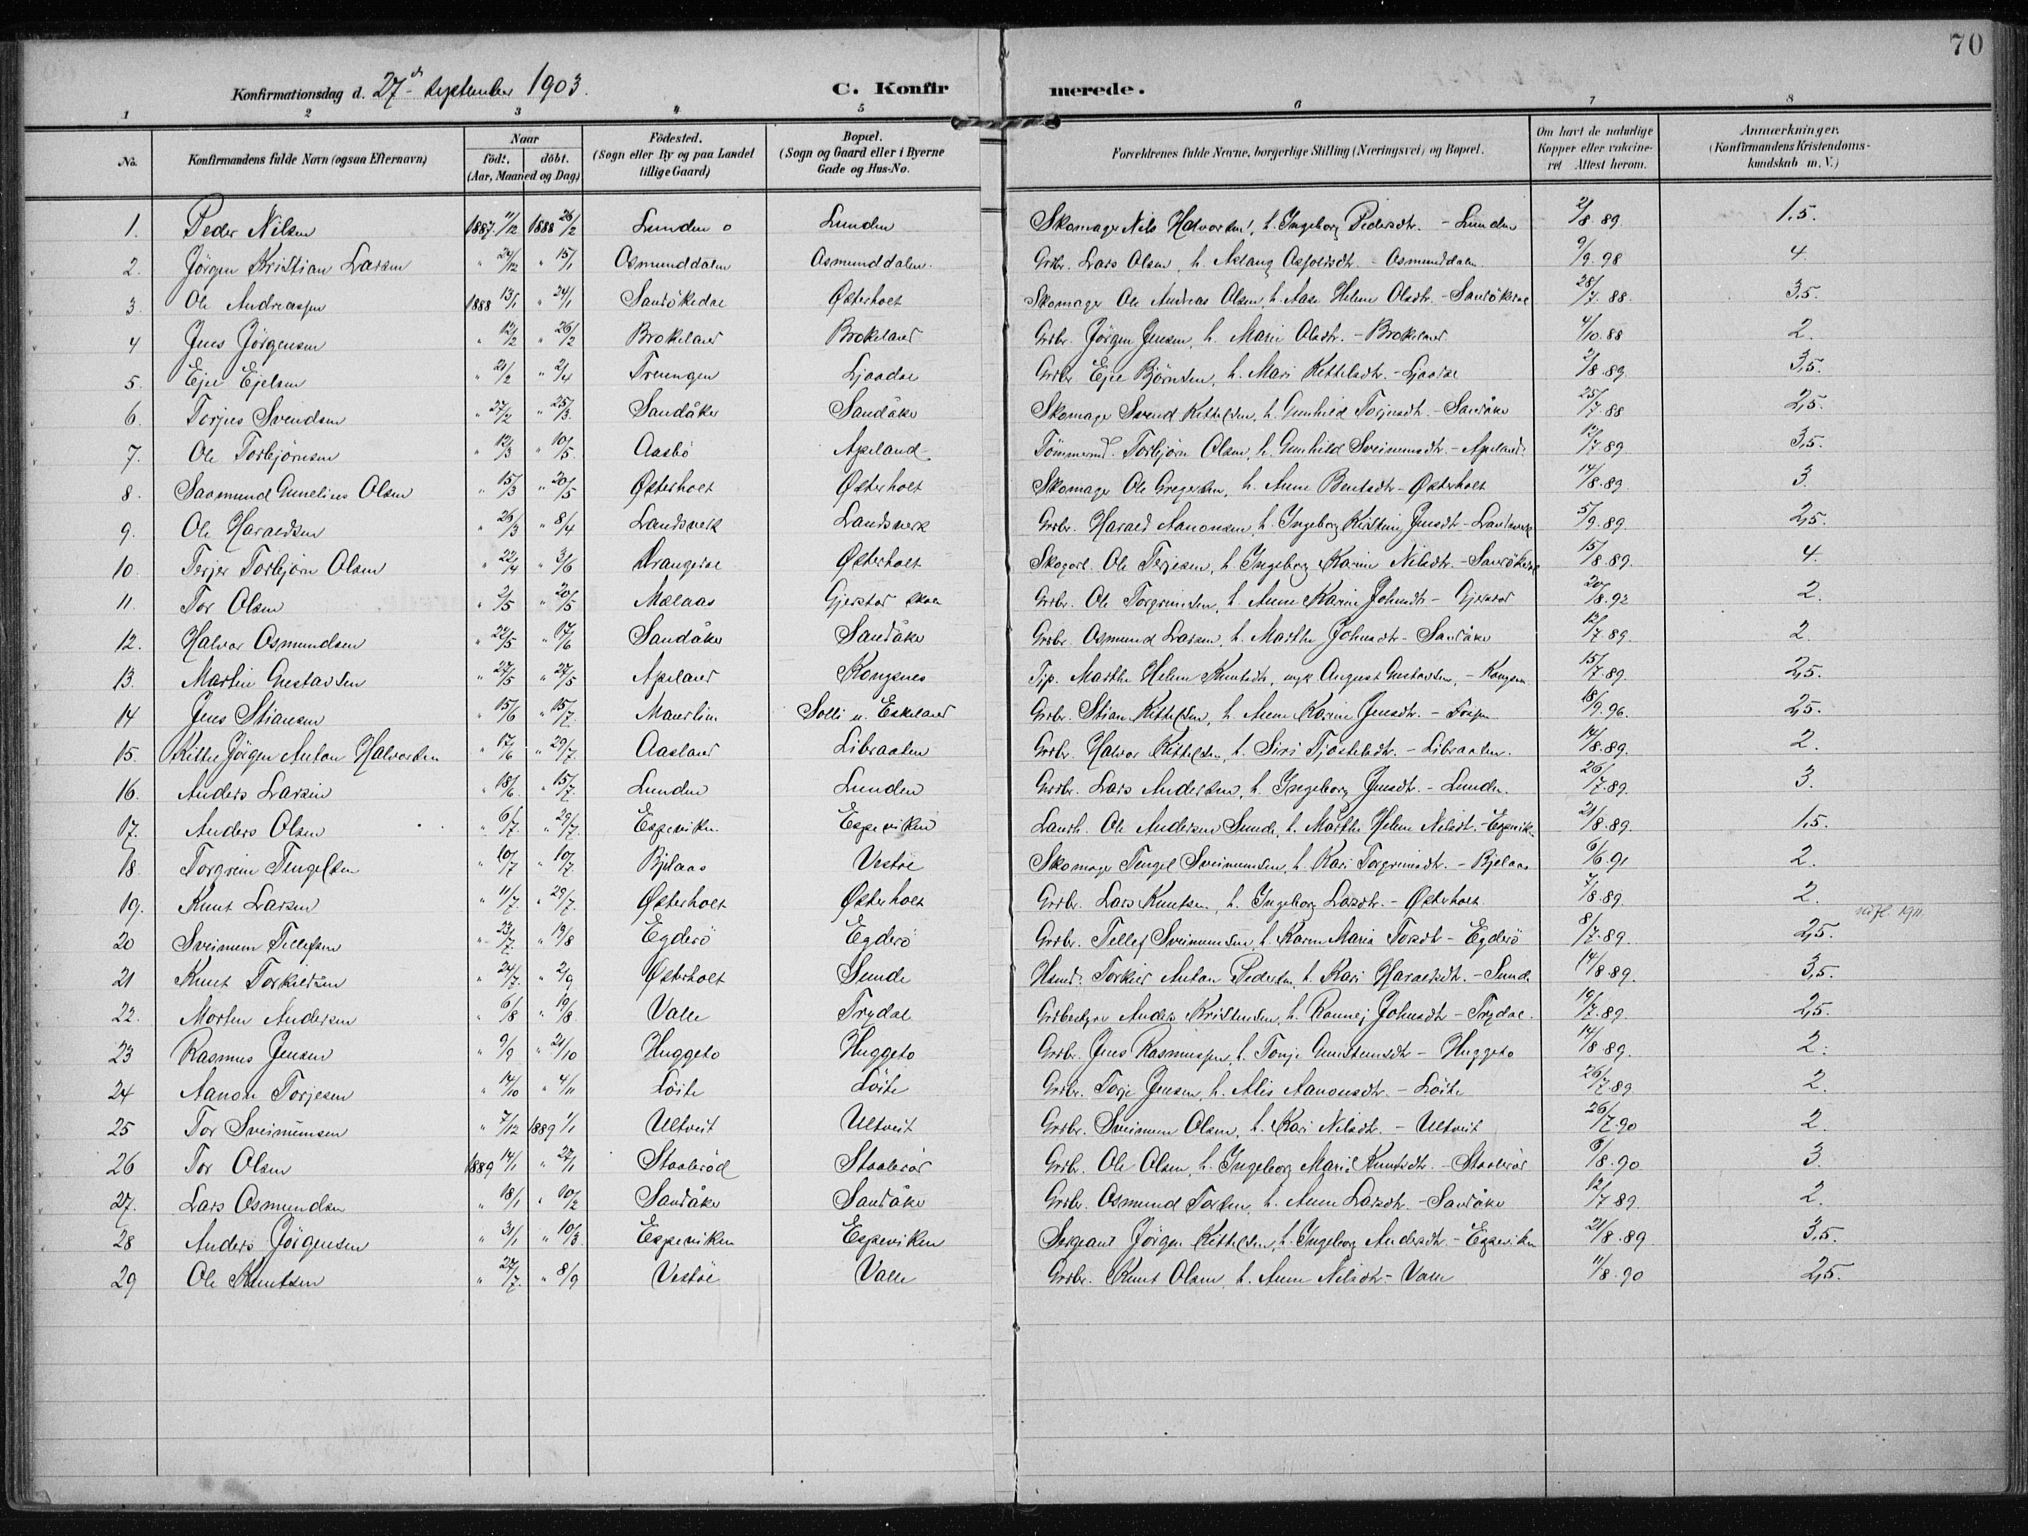 70
Konfirmationsdag d. 27de September 1903. C. Konfirmerede.
1 2 3 4 5 6 7 8
No. Konfirmandens fulde Navn (ogsaa Efternavn) Naar födt. döbt. (Aar, Maaned og Dag) Födested. (Sogn eller By og paa Landet tillige Gaard) Bopæl. (Sogn og Gaard eller i Byerne Gade og Hus-No. Forældrenes fulde Navne, borgerlige Stilling (Næringsvei) og Bopæl. Om havt de naturlige Kopper eller vakcineret Attest herom. Anmærkninger. (Konfirmandens Kristendomskundskab m. V.)
1. Peder Nilsen 1887 11/12 1888 26/2 Lunden Lunden Skomager Nils Halvorsen, h. Ingeborg Pedersdtr. - Lunden 2/8 89 1,5.
2. Jörgen Kristian Larsen " 24/12 " 15/1 Osmunddalen Osmunddalen. Grdbr. Lars Olsen, h. Aslaug Asjoldsdtr. - Osmunddalen 9/9. 98 4.
3 Ole Andreassen 1888 13/1 " 24/1 Sandökedal Østerholt Skomager Ole Andreas Olsen, h. Aase Helene Olsdtr. - Sandökedal 28/7. 88. 3,5.
4 Jens Jörgensen " 12/2 " 26/2 Brokeland Brokeland Grdbr. Jörgen Jensen, h. Marie Olsdtr. - Brokeland 4/10. 88 2.
5. Ejel Ejelsen " 21/2 " 2/4 Treungen Ljosdal Grdbr. Ejel Björnsen, h. Mari Kittelsdtr. - Ljosdal 2/8 89. 3,5.
6 Torjus Svendsen " 27/2 " 25/3. Sandåker Sandåker Skomager Svend Kittelsen, h. Gunhild Torjusdtr. - Sandåker 25/7 88 2,5.
7. Ole Torbjörnsen " 12/3 " 10/5. Aasbö Apeland Tömmermd. Torbjörn Olsen, h. Gunhild Sveinemsdtr - Apeland. 12/7 89. 3,5.
8. Saamund Gunelius Olsen " 15/3 " 20/5 Østerholt Østerholt Skomager Ole Gregersen, h. Anne Bentsdtr - Østerholt 14/8. 89. 3
9. Ole Haraldsen " 26/3 " 8/4 Landsverk Landsverk Grdbr. Harald Aanonsen, h. Ingeborg Kirstine Jensdtr - Landsverk 5/9. 89. 2,5.
10. Terjer Torbjörn Olsen " 22/4 " 3/6 Drangedal Østerholt Skogarb. Ole Terjesen, h. Ingeborg Karine Nilsdtr. - Sandökedal 15/8. 89. 4.
11. Tor Olsen " 2/5 " 20/5 Melaas Gjerstad Skole Grdbr. Ole Torgrimsen, h. Anne Karine Johnsdtr - Gjerstad 20/8. 92 2.
12. Halvor Osmundsen " 22/5 " 17/6 Sandåker Sandåker Grdbr. Osmund Larsen, h. Marthe Johnsdtr - Sandåker 12/7. 89. 2.
13. Martin Gustavsen " 27/5 " 27/5 Apeland Kongsnes Pip. Marthe Helene Knutsdtr, ungk. August Gustavsen, - Kongsnes 15/7. 89. 2,5.
14 Jens Stiansen " 15/6 " 15/7. Mauerlien Solli u. Eskeland Grdbr. Stian Kittelsen, h. Anne Karine Jensdtr. - 18/9. 96. 2,5.
15. Kittel Jörgen Anton Halvorsen " 17/6 " 29/7. Aasland Libraaten Grdbr. Halvor Kittelsen, h. Siri Tjöstelsdtr. - Libraaten. 14/8. 89. 2.
16. Anders Larsen " 18/6. " 15/7. Lunden Lunden Grdbr. Lars Andersen, h. Ingeborg Jensdtr. - Lunden. 26/7. 89. 3.
17. Anders Olsen " 6/7. " 29/7. Espeviken. Espeviken Landh. Ole Andersen Sunde, h. Marthe Helene Nilsdtr. - Espeviken 21/8. 89. 1,5.
18. Torgrim Tengelsen " 10/7 " 10/7. Bjelaas Vestöl Skomager Tengel Sveinumsen, h. Kari Torgrimsdtr. - Bjelaas 6/6. 91 2.
19. Knut Larsen " 11/7. " 29/7. Østerholt Østerholt Grdbr. Lars Knutsen, h. Ingeborg Larsdtr. - Østerholt. 7/8. 89 2.
20 Sveinum Tellefsen " 23/7 " 19/8 Egderö Egderö Grdbr. Tellef Sveinumsen, h. Karen Maria Torsdtr - Egderö 8/7. 89. 2,5. 1911.
21 Knut Torkildsen " 24/7. " 2/9 Østerholt Sunde Husmd. Torkild Anton Pedersen, h. Kari Haraldsdtr. - Sunde 14/8. 89. 3,5.
22. Morten Andersen " 6/8 " 19/8. Valle Trydal Grdbestyrer Anders Kristensen, h. Rannej Johnsdtr - Trydal. 19/7. 89. 2,5.
23 Rasmus Jensen " 9/9 " 21/10 Huggeto Huggeto Grdbr. Jens Rasmussen, h. Tonje Gunstensdtr - Huggeto 14/8 89. 2.
24 Aanon Torjesen " 14/10 " 4/11 Löite Löite Grdbr. Torje Jensen, h. Alis Aanonsdtr. - Löite 26/7. 89 2.
25 Tor Sveinumsen " 7/12 1889 1/1 Ultveit Ultveit Grdbr. Sveinum Olsen, h. Kari Nilsdtr. - Ultveit 26/7. 90 2.
26 Tor Olsen 1889 14/1 " 27/1 Staaleröd Staaleröd Grdbr. Ole Olsen, h. Ingeborg Marie Knutsdtr. - Staaleröd 6/8. 90 3.
27. Lars Osmundsen " 18/1 " 10/2 Sandåker Sandåker Grdbr. Osmund Torsen, h. Anne Larsdtr. - Sandåker 12/7 89. 2.
28 Anders Jörgensen " 31/1 " 10/3 Espeviken Espeviken Sergeant Jörgen Kittelsen, h. Ingeborg Andersdtr. - Espeviken 21/8. 89. 3,5.
29 Ole Knutsen " 27/7. " 8/9 Vestöl Valle Grdbr. Knut Olsen, h. Anne Nilsdtr - Valle 11/8. 90 2,5.